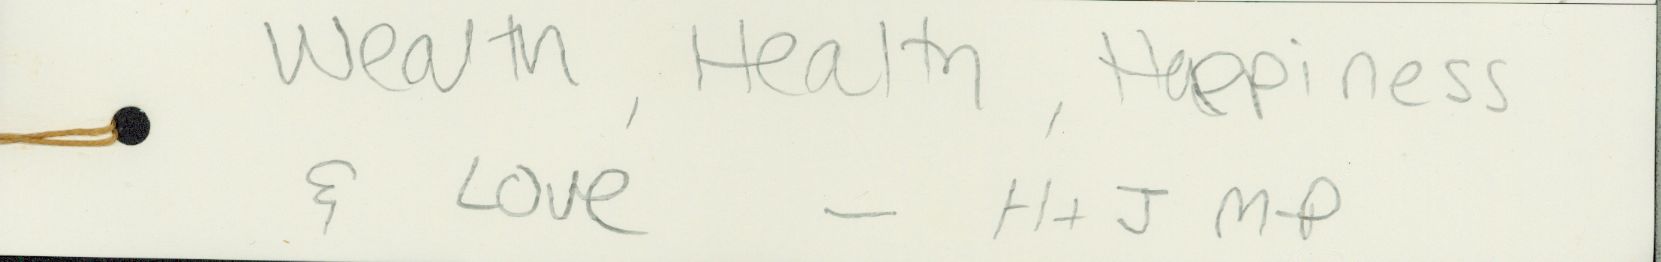 Wealth, Health, Happiness
& Love — H+J M-P